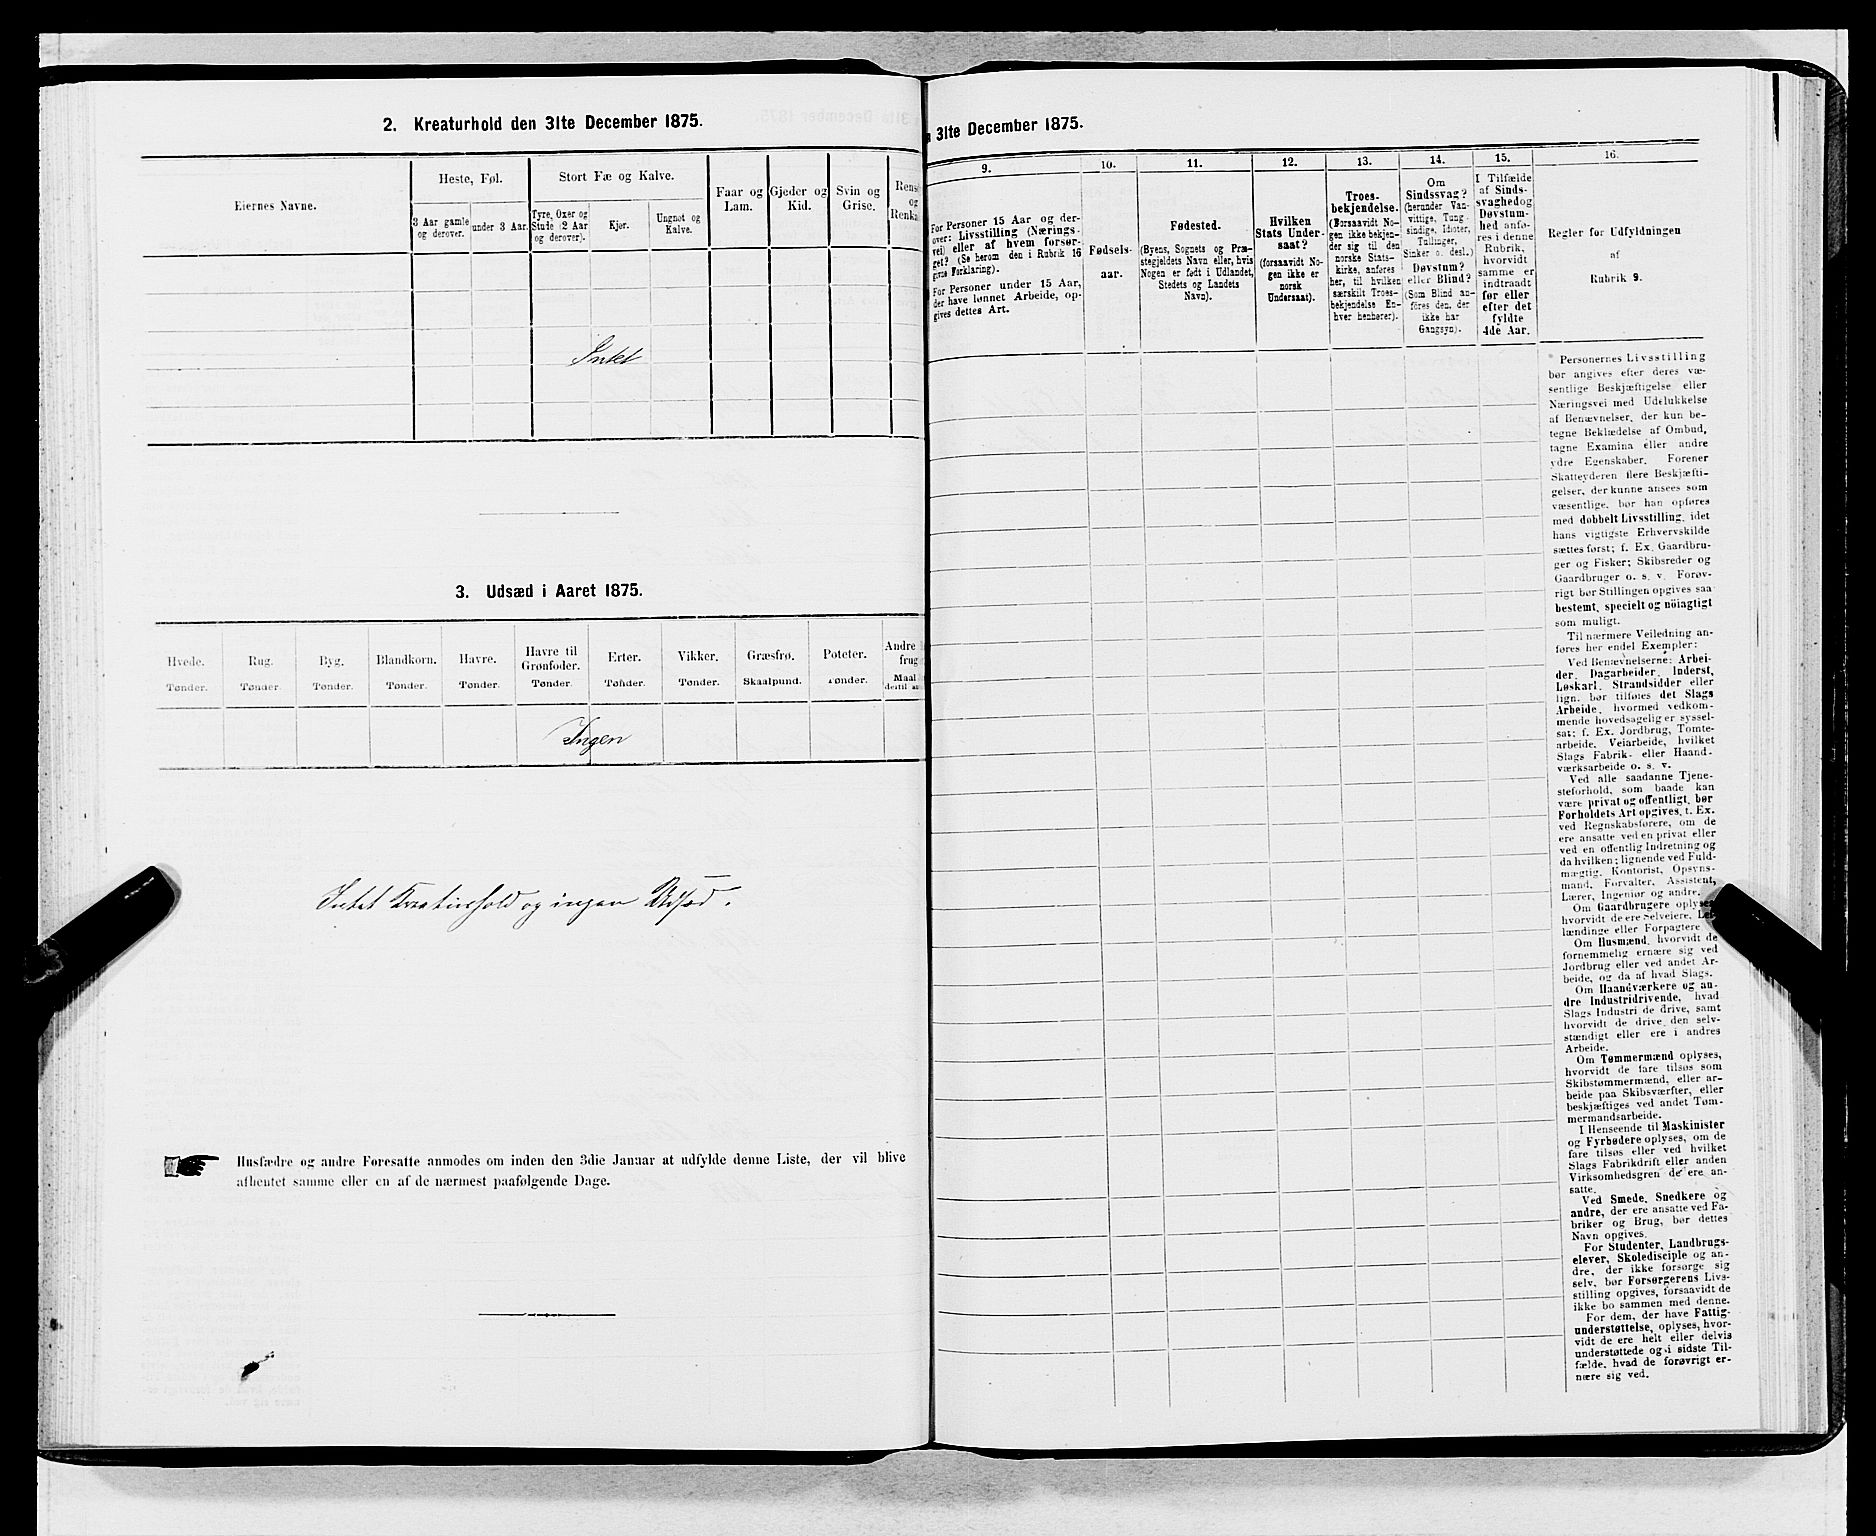 2. Kreaturhold den 31te December 1875.
Eiernes Navne.
Heste, Føl.
3 Aar gamle
og derover.
under 3 Aar.
Stort Fæ og Kalve.
Tyre, Oxer og
Stude (2 Aar
og derover).
Kjør.
Ungnøt og
Kalve.
Faar og
Lam.
Gjeder og
Kid.
Svin og
Grise.
Rens
og
Renka
Intet
3. Udsæd i Aaret 1875.
Hvede.
Tønder.
Rug.
Tønder.
Byg.
Tønder.
Blandkorn.
Tønder.
Havre.
Tønder.
Havre til
Grønfoder.
Tønder.
Erter.
Tønder.
Vikker.
Tønder.
Græsfrø.
Skaalpund.
Poteter.
Tønder.
Andre
frug
Maal
dertil
Ingen
Intet Kreaturhold og ingen Udsæd.
Husfædre og andre Foresatte anmodes om inden den 3die Januar at udfylde denne Liste, der vil blive
afhentet samme eller en af de nærmest paafølgende Dage.
31te December 1875.
9.
For Personer 15 Aar og der-
over: Livsstilling (Nærings-
vei) eller af hvem forsør-
get? (Se herom den i Rubrik 16
givne Forklaring).
For Personer under 15 Aar,
der have lønnet Arbeide, op-
gives dettes Art.
10.
Fødsels-
aar.
11.
Fødested.
(Byens, Sognets og Præ-
stegjeldets Navn eller, hvis
Nogen er født i Udlandet,
Stedets og Landets
Navn).
12.
Hvilken
Stats Under-
saat?
(forsaavidt No-
gen ikke er
norsk
Undersaat).
13.
Troes-
bekjendelse.
(Forsaavidt No-
gen ikke bekjen-
der sig til den
norske Stats-
kirke, anføres
her, til hvilken
særskilt Troes-
bekjendelse En-
hver henhører).
14.
Om
Sindssvag?
(herunder Van-
vittige, Tung-
sindige, Idioter,
Tullinger,
Sinker o. desl.)
Døvstum?
eller Blind?
(Som Blind an-
føres den, der
ikke har
Gangsyn).
15.
I Tilfælde
af Sinds-
svaghed og
Døvstum-
hed anfø-
res i denne
Rubrik,
hvorvidt
samme er
indtraadt
før eller
efter det
fyldte
4de Aar.
16.
Regler for Udfyldningen
af
Rubrik 9.
Personernes Livsstilling
bør angives efter deres væ-
sentlige Beskjæftigelse eller
Næringsvei med Udelukkelse
af Benævnelser, der kun be-
tegne Beklædelse af Ombud,
tagne Examina eller andre
ydre Egenskaber. Forener
Skatteyderen flere Beskjæfti-
gelser, der kunne ansees som
væsentlige, bør han opføres
med dobbelt Livsstilling, idet
hans vigtigste Erhvervskilde
sættes først; f. Ex. Gaardbru-
ger og Fisker; Skibsreder og
Gaardbruger o. s. v. Forøv-
rigt bør Stillingen opgives saa
bestemt, specielt og nöiagtigt
som muligt.
Til nærmere Veiledning an-
føres her endel Exempler:
Ved Benævnelserne: Arbei-
der, Dagarbeider, Inderst,
Løskarl, Strandsidder eller
lign. bør tilføies det Slags
Arbeide, hvormed vedkom-
mende hovedsagelig er syssel-
sat; f. Ex. Jordbrug, Tomte-
arbeide, Veiarbeide, hvilket
Slags Fabrik- eller Haand-
værksarbeide o. s. v.
Ved alle saadanne Tjene-
steforhold, som baade kan
være privat og offentligt, bør
Forholdets Art opgives, f. Ex.
ved Regnskabsførere, om de
ere ansatte ved en privat eller
ved en offentlig Indretning og
da hvilken; lignende ved Fuld-
mægtig, Kontorist, Opsyns-
mand, Forvalter, Assistent,
Lærer, Ingeniør og andre.
Om Gaardbrugere oplyses
hvorvidt de ere Selveiere, Lei-
lændinge eller Forpagtere
Om Husmænd, hvorvidt de
fornemmelig ernære sig ved
Jordbrug eller ved andet Ar-
beide, og da af hvad Slags.
Om Haandværkere og an-
dre Industridrivende, hvad
Slags Industri de drive, samt
hvorvidt de drive den selv-
stændigt eller ere i andres
Arbeide.
Om Tømmermænd oplyses,
hvorvidt de fare tilsøs som
Skibstømmermænd, eller ar-
beide paa Skibsværfter, eller
beskjæftiges ved andet Tøm-
mermandsarbeide.
I Henseende til Maskinister
og Fyrbødere oplyses, om de
fare tilsøs eller ved hvilket
Slags Fabrikdrift eller anden
Virksomhedsgren de ere an-
satte.
Ved Smede, Snedkere og
andre, der ere ansatte ved Fa-
briker og Brug, bør dettes
Navn opgives.
For Studenter, Landbrugs-
elever, Skoledisciple og an-
dre, der ikke forsørge sig
selv, bør Forsørgerens Livs-
stilling opgives, forsaavidt de
ikke bo sammen med denne.
For dem, der have Fattig-
understøttelse, oplyses, hvor-
vidt de ere helt eller delvis
understøttede og i sidste Til-
fælde, hvad de forøvrigt er-
nære sig ved.